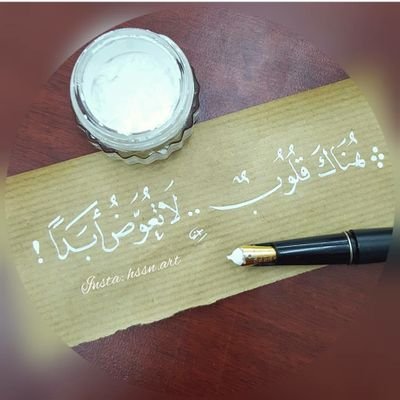 هُنَاكَ قُلُوبٌ .. لَا تُعَوَّضُ أَبَدًا !
Insta: hssn.art